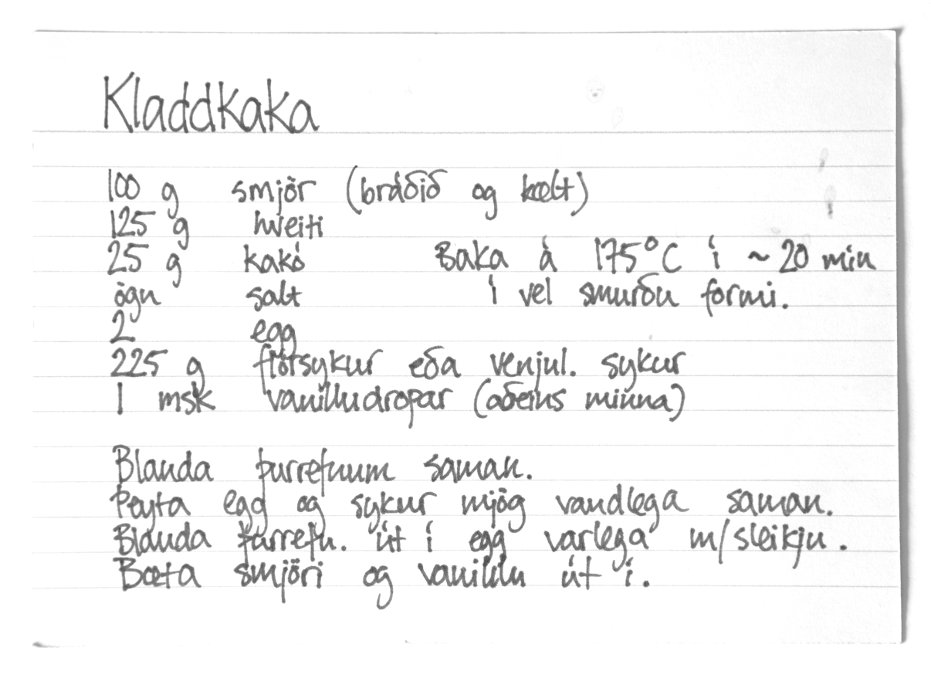 Kladdkaka
100 g smjör (bráðið og kælt)
125 g hveiti
25 g kakó Baka á 175°C í ~ 20 min
ögn salt í vel smurðu formi.
2 egg
225 g flórsykur eða venjul. sykur
1 msk vanilludropar (aðeins minna)
Blanda þurrefnum saman.
Þeyta egg og sykur mjög vandlega saman.
Blanda þurrefn. út í egg varlega m/sleikju.
Bæta smjöri og vanillu út í.